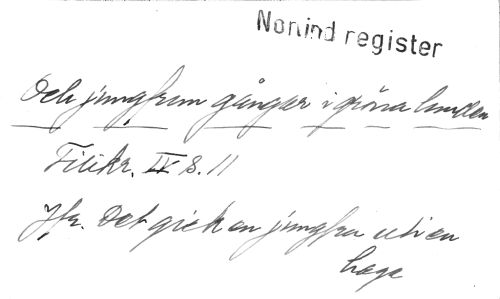 Norlind register
Och jungfrun gångar i gröna lunden
Filikr. IV s. 11
Jfr. Det gick en jungfru uti en
hage